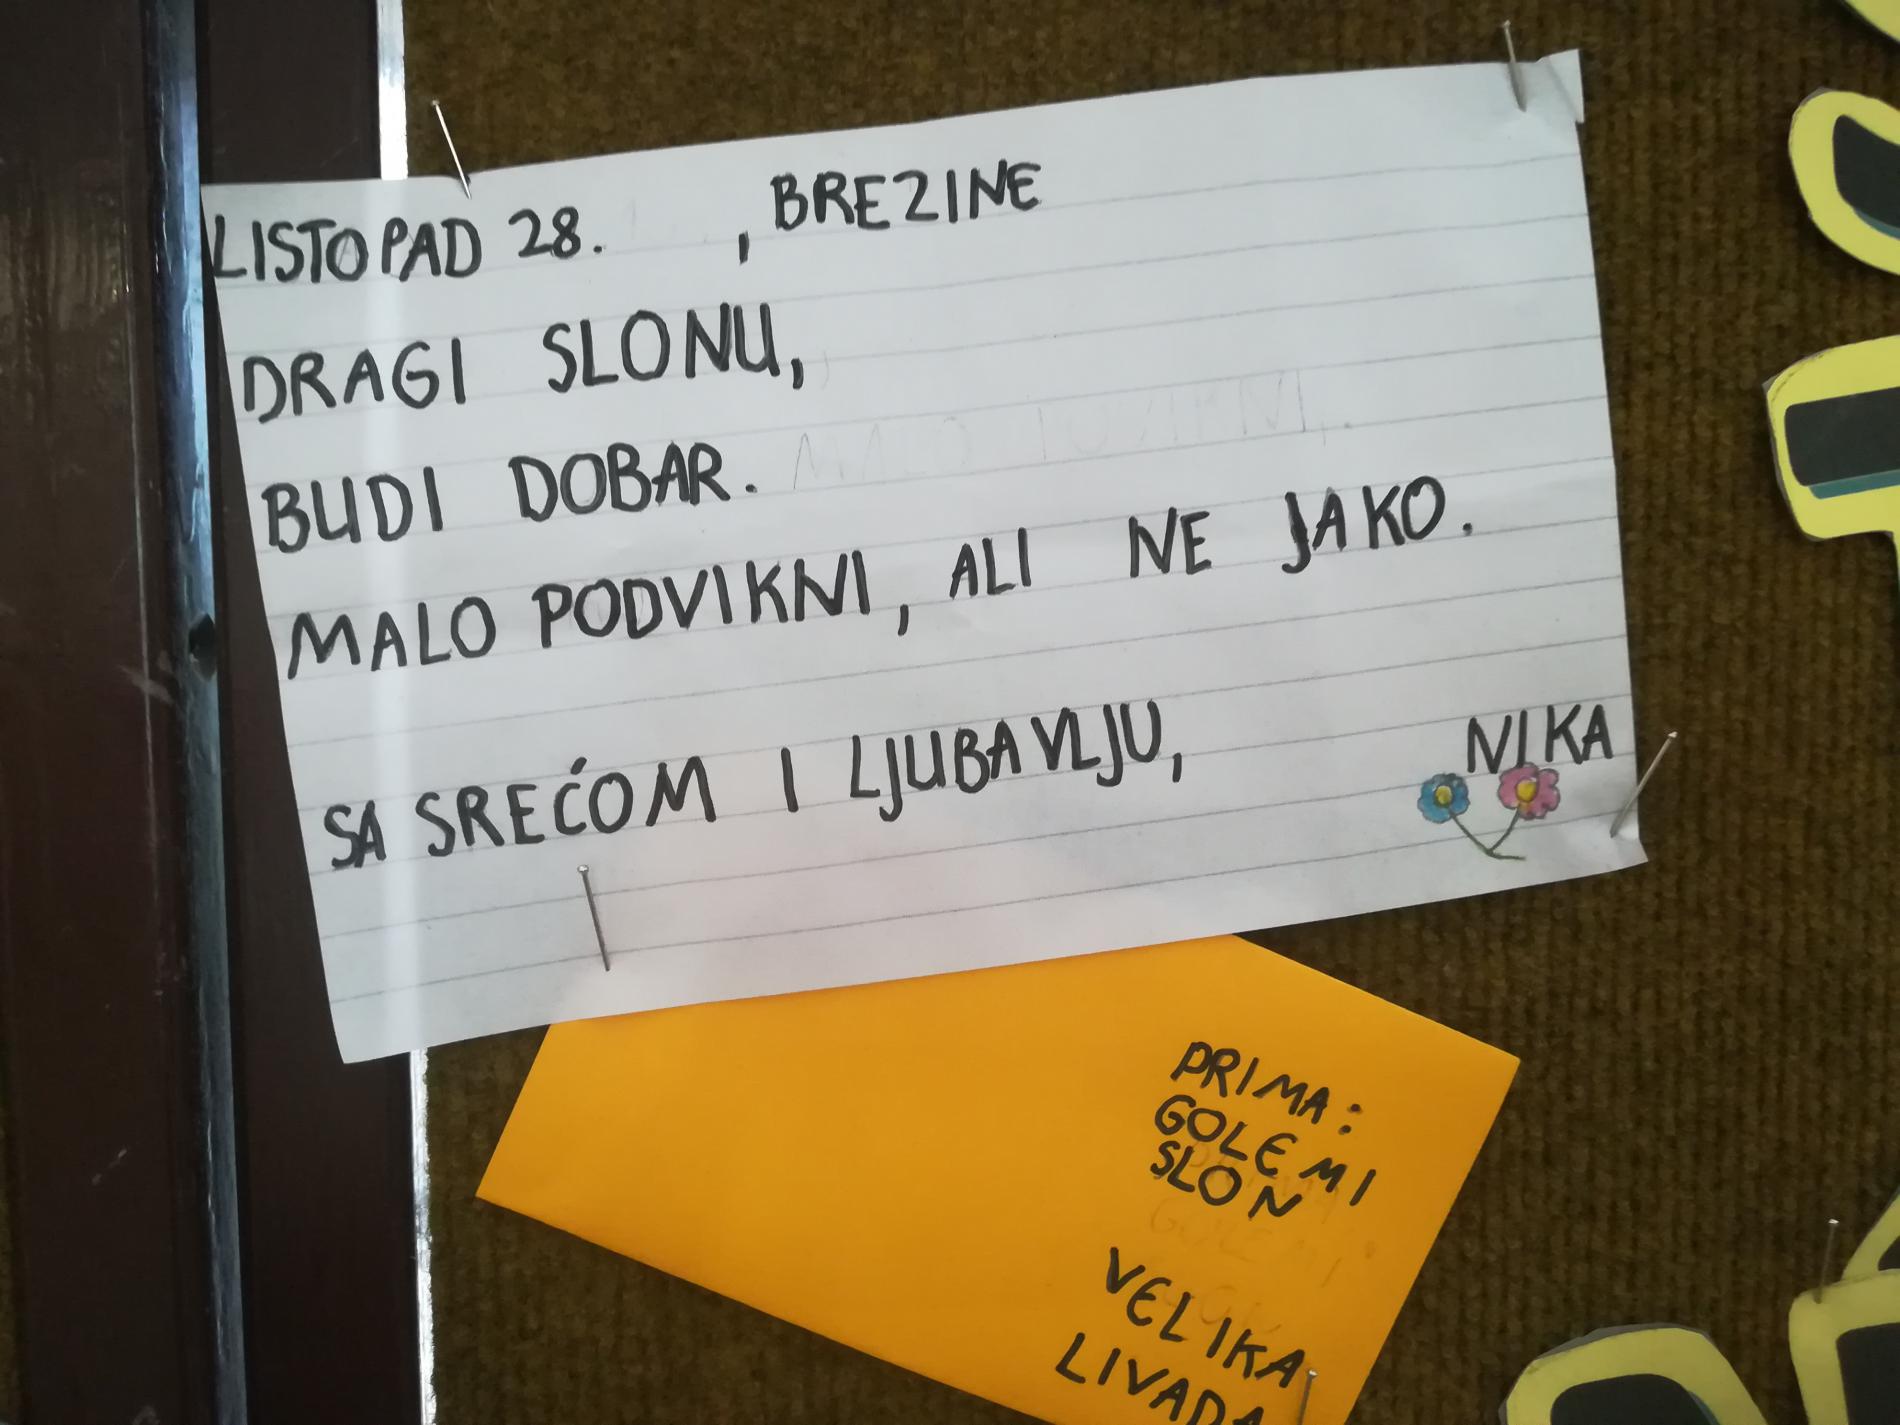 LISTOPAD 28. , BREZINE
DRAGI SLONU,
BUDI DOBAR. MALO
MALO PODVIKNI, ALI NE JAKO.
SA SREĆOM I LJUBAVLJU, NIKA
PRIMA:
GOLEMI
SLON
GOLEMI
VELIKA
LIVADA